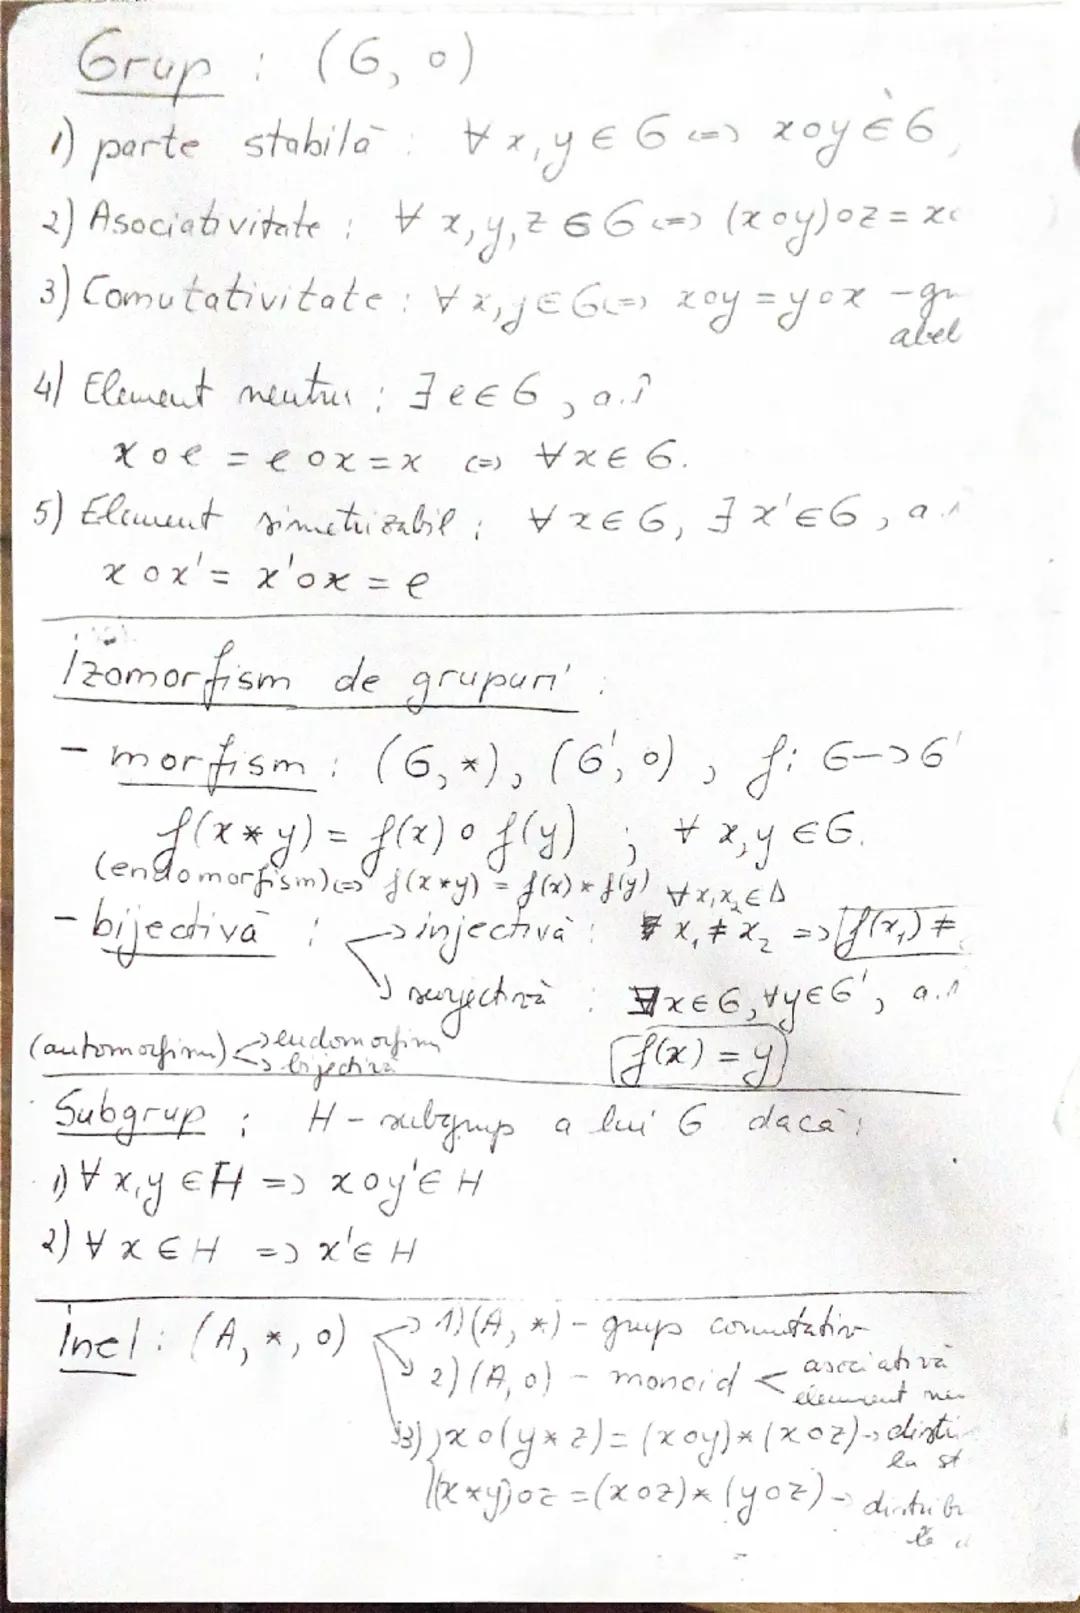 Grup : (G, o)
1) parte stabilă : ∀ x,y ∈ G <=> xoy ∈ G,
2) Asociativitate : ∀ x,y,z ∈ G <=> (xoy)oz = x
3) Comutativitate : ∀ x,y ∈ G <=> xoy = yox - gr
abel
4) Element neutru : ∃ e ∈ G, a.î
xoe = eox = x <=> ∀x ∈ G.
5) Element simetrizabil : ∀ x ∈ G, ∃ x' ∈ G, a.î
xox' = x'ox = e
Izomorfism de grupuri :
- morfism : (G, *), (G', o), f: G -> G'
f(x * y) = f(x) o f(y) ; ∀ x,y ∈ G.
(endomorfism) <=> f(x*y) = f(x) * f(y) ∀ x₁x₂ ∈ D
- bijectivă : -> injectivă : x₁ ≠ x₂ => f(x₁) ≠
-> surjectivă : ∃x ∈ G, ∀y ∈ G', a.î
(automorfism) -> endomorfism
-> bijectivă
f(x) = y
Subgrup : H - subgrup a lui G dacă :
1) ∀ x,y ∈ H => xoy' ∈ H
2) ∀ x ∈ H => x' ∈ H
Inel : (A, *, o) -> 1) (A, *) - grup comutativ
-> 2) (A, o) - monoid < asociativă
element ne
3) xo(y * z) = (xoy) * (xoz) -> distri
la st
(x*y)oz = (xoz) * (yoz) - distrib